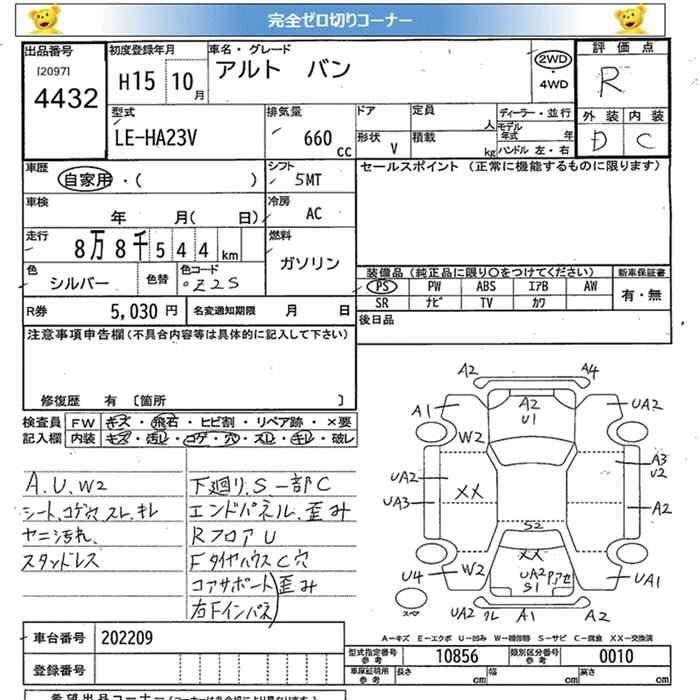 完全ゼロ切りコーナー
出品番号
[2097]
4432
初度登録年月
H15 10 月
車名・グレード
アルト バン
2WD
・
4WD
評価点
R
外装 内装
D C
型式
LE-HA23V
排気量
660 cc
ドア
定員
人
形状
V
積載
kg
ディーラー・並行
モデル年式 年
ハンドル 左・右
車歴
自家用・( )
シフト
5MT
セールスポイント (正常に機能するものに限ります)
車検
年 月( 日)
冷房
AC
走行
8万8千544km
燃料
ガソリン
色
シルバー
色替
色コード
Z2S
装備品(純正品に限り〇をつけてください)
新車保証書
PS PW ABS エアB AW
SR ナビ TV カワ
有・無
R券 5,030 円
名変通知期限 月 日
後日品
注意事項申告欄(不具合内容等は具体的に記入して下さい)
修復歴 有 〔箇所 〕
検査員記入欄
FW キズ・飛石・ヒビ割・リペア跡・×要
内装 キズ・汚レ・コゲ・穴・スレ・キレ・破レ
A、U、W2
シート、コゲ穴、スレ、キレ
ヤニ汚れ
スタッドレス
下廻り、S、一部C
エンドパネル、歪み
RフロアU
FタイヤハウスC穴
コアサポート 歪み
右Fインパネ
A2 A4
A1 A2 U1 UA2
W2
UA2 A3 U2
UA3 XX A2
S2
XX
U4 W2 UA2 Pアセ S1 UA1
スペア
UA2 クレ A1 A2
A-キズ E-エクボ U-凹み W-補修跡 S-サビ C-腐食 XX-交換済
車台番号 202209
登録番号
型式指定番号 参考 10856
類別区分番号 参考 0010
車庫証明用 参考 長さ cm 幅 cm 高さ cm
希望出品コーナー